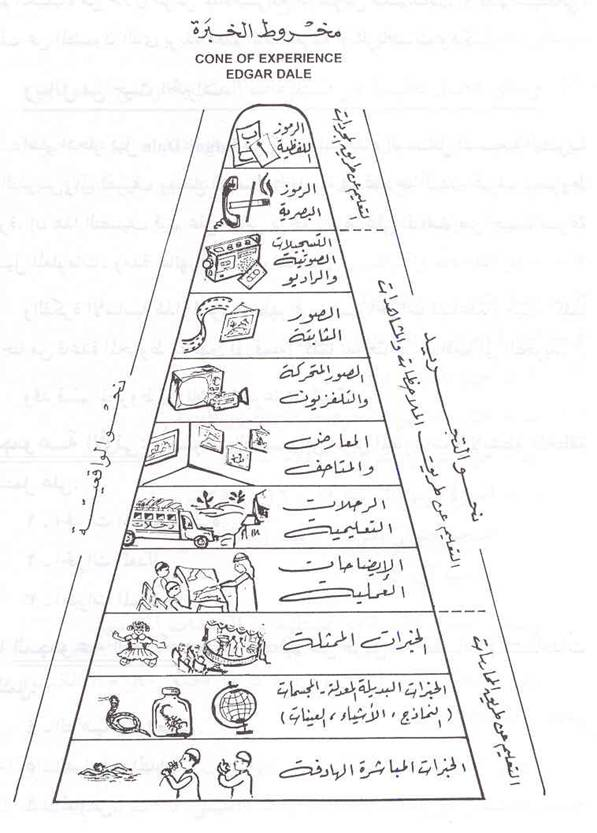 مخروط الخبَرة
CONE OF EXPERIENCE
EDGAR DALE
الرموز
اللفظية
الرموز
البصرية
التسجيلات
الصوتية
والراديو
الصور
الثابتة
الصور المتحركة
والتلفزيون
المعارض
والمتاحف
الرحلات
التعليمية
الإيضاحات
العملية
الخبرات الممثلة
الخبرات البديلة المعدلة - المجسمات
(النماذج، الأشياء، العينات)
الخبرات المباشرة الهادفة
نحو الواقعية
نحو التجريد
التعليم عن طريق
الملاحظات والمشاهدات
التعليم عن طريق الممارسات